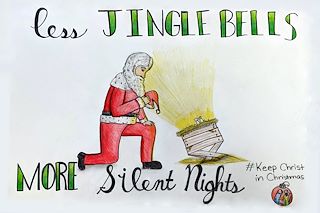 less JINGLE BELLS
MORE Silent Nights
#Keep Christ
in Christmas